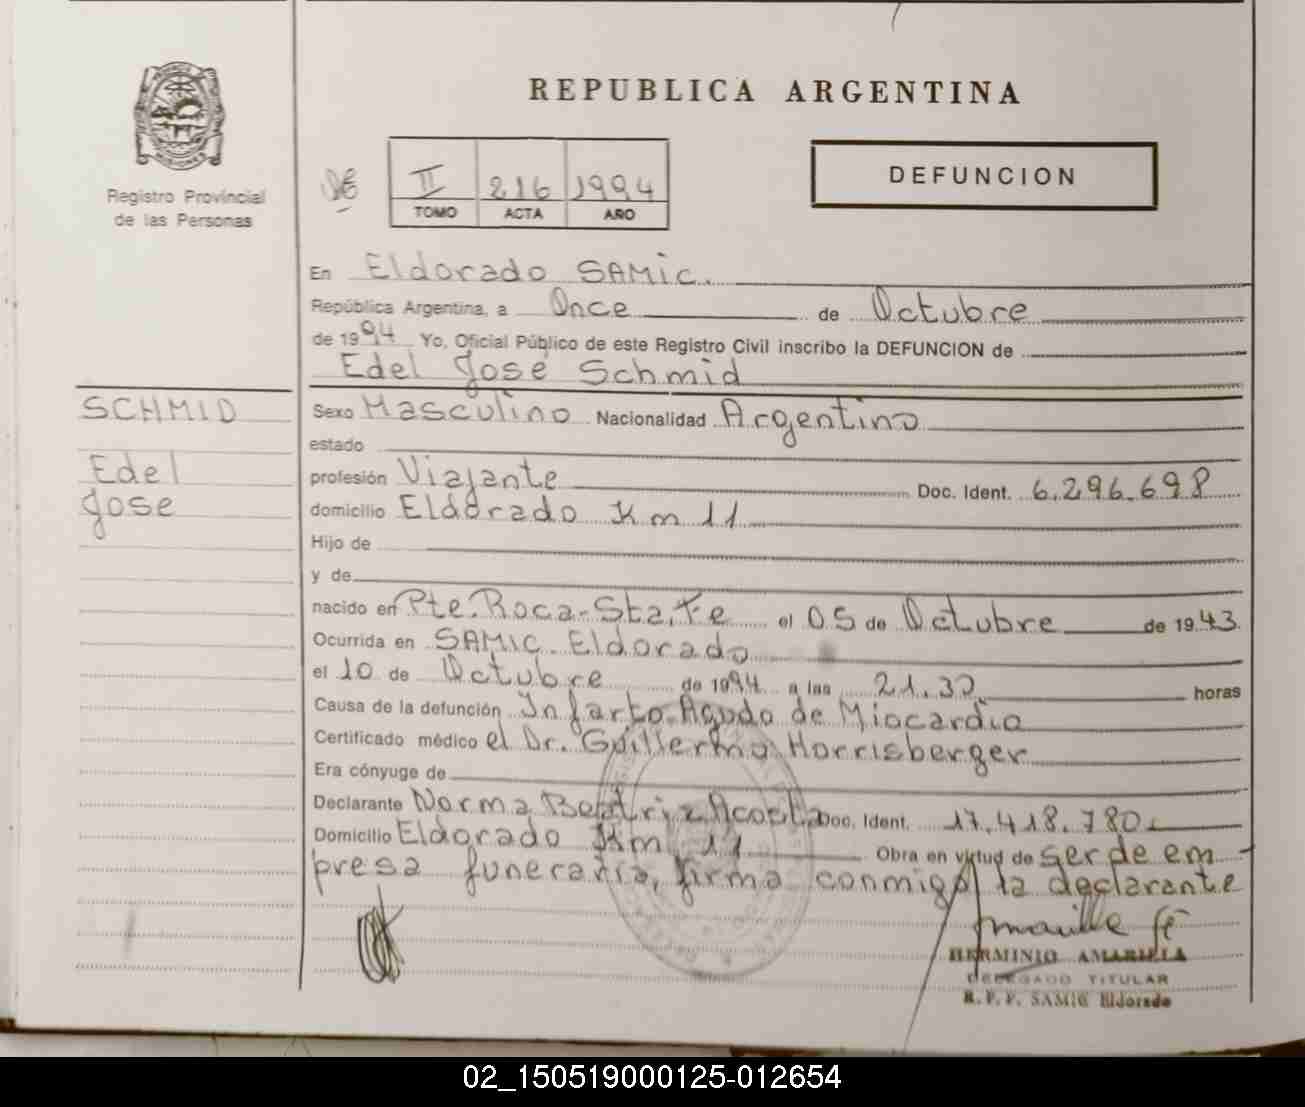 REPUBLICA ARGENTINA
Registro Provincial
de las Personas
II 216 1994
TOMO ACTA AÑO
DEFUNCION
En Eldorado SAMIC.
República Argentina, a Once de Octubre
de 1994 Yo, Oficial Público de este Registro Civil inscribo la DEFUNCION de
Edel José Schmid
SCHMID
Edel
Jose
Sexo Masculino Nacionalidad Argentino
estado
profesión Viajante Doc. Ident. 6.296.698
domicilio Eldorado Km 11
Hijo de
y de
nacido en Pte. Roca-Sta. Fe el 05 de Octubre de 1943
Ocurrida en SAMIC. Eldorado
el 10 de Octubre de 1994 a las 21.30 horas
Causa de la defunción Infarto Agudo de Miocardio
Certificado médico el Dr. Guillermo Horrisberger
Era cónyuge de
Declarante Norma Beatriz Acosta Doc. Ident. 17.418.780
Domicilio Eldorado Km 11 Obra en virtud de ser de em-
presa funeraria, firma conmigo la declarante
HERMINIO AMARILLA
DELEGADO TITULAR
R. P. P. SAMIC Eldorado
02_150519000125-012654